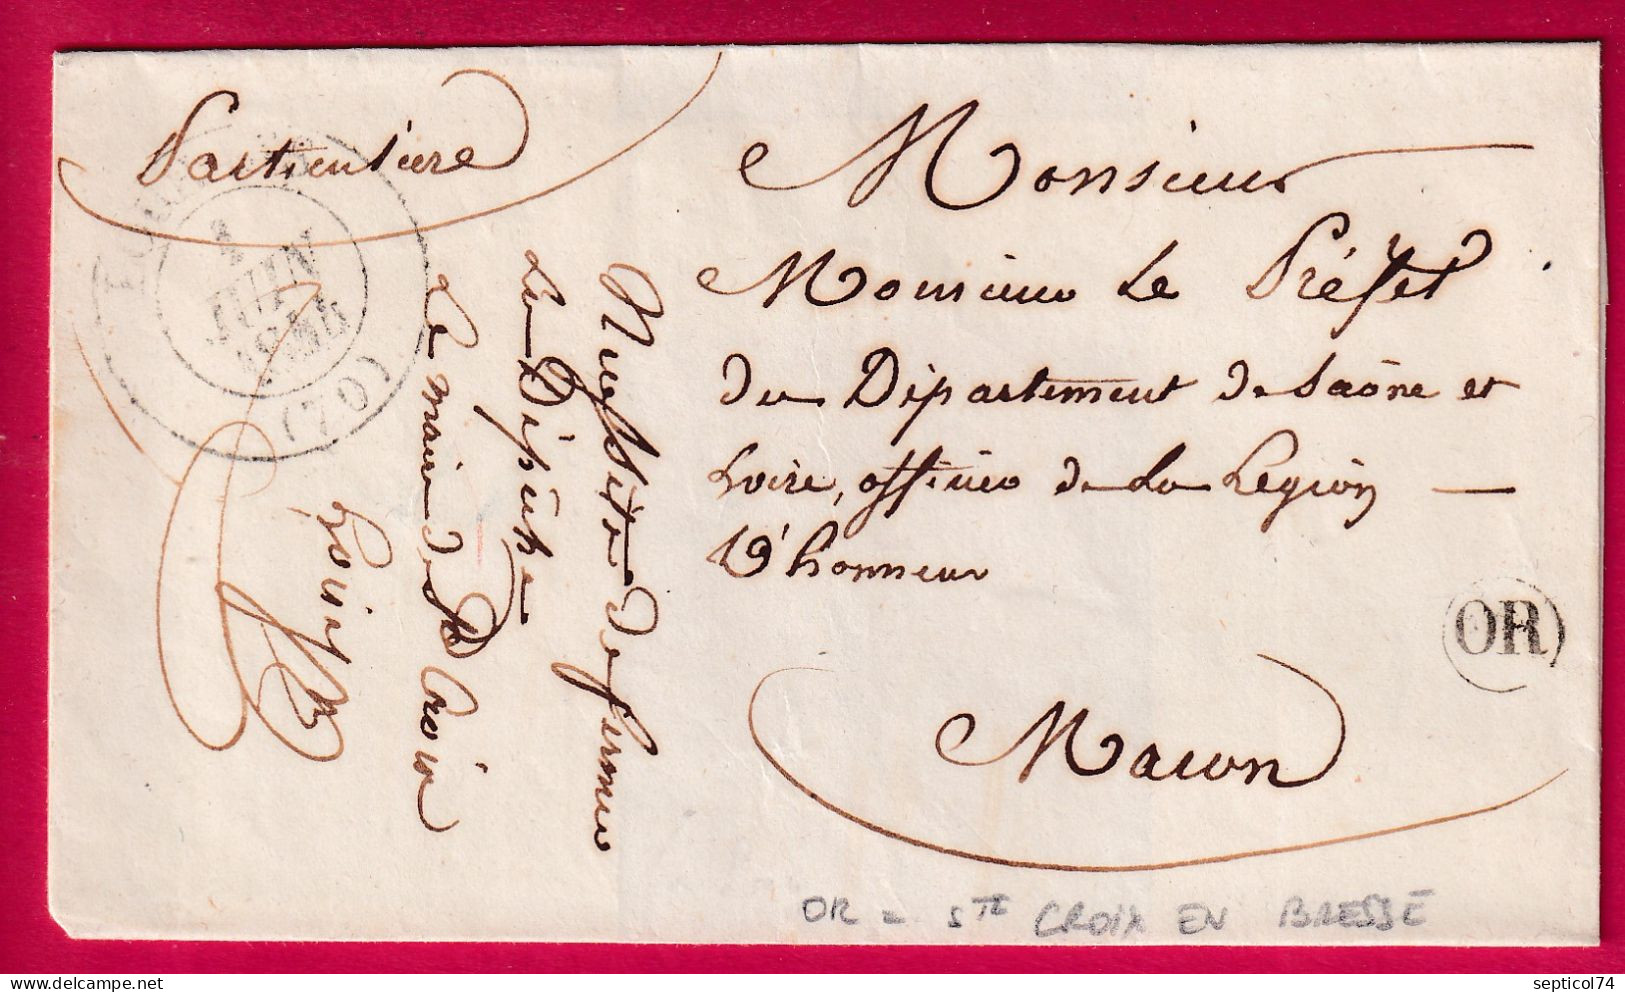 Particulière
2
JUIN
(70)
Monsieur
Monsieur Le Préfet
du Département de Saône et
Loire, officier de La Légion
D'honneur
Macon
Nécessité de fermer
La Dépêche
Le maire de Ste Croix
OR
OR = STE CROIX EN BRESSE
septicol74